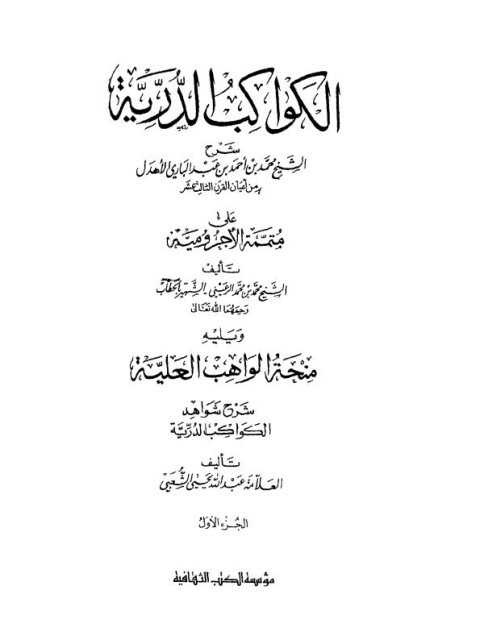 الكواكب الدرية
شرح
الشيخ محمد بن أحمد بن عبد الباري الأهدل
من أعيان القرن الثالث عشر
على
متممة الآجرومية
تأليف
الشيخ محمد بن محمد الرعيني الشهير بالحطاب
رحمهما الله تعالى
ويليه
منحة الواهب العلية
شرح شواهد
الكواكب الدرية
تأليف
العلامة عبد الله يحيى الشعبي
الجزء الأول
مؤسسة الكتب الثقافية